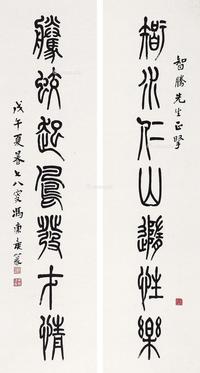 智騰先生正
智水仁山適性樂
騰蛟起鳳發才情
戊午夏暮七八叟馮康侯篆